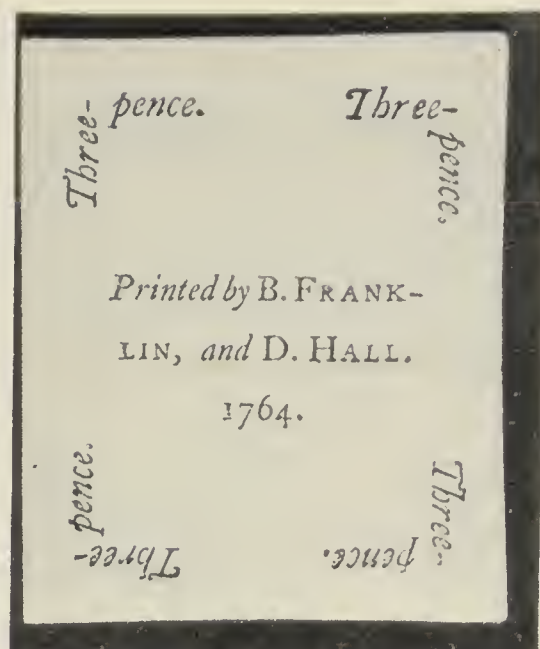 Three-
pence.
Three-
pence.
Printed by B. FRANK-
LIN, and D. HALL.
1764.
Three-
pence.
Three-
pence.